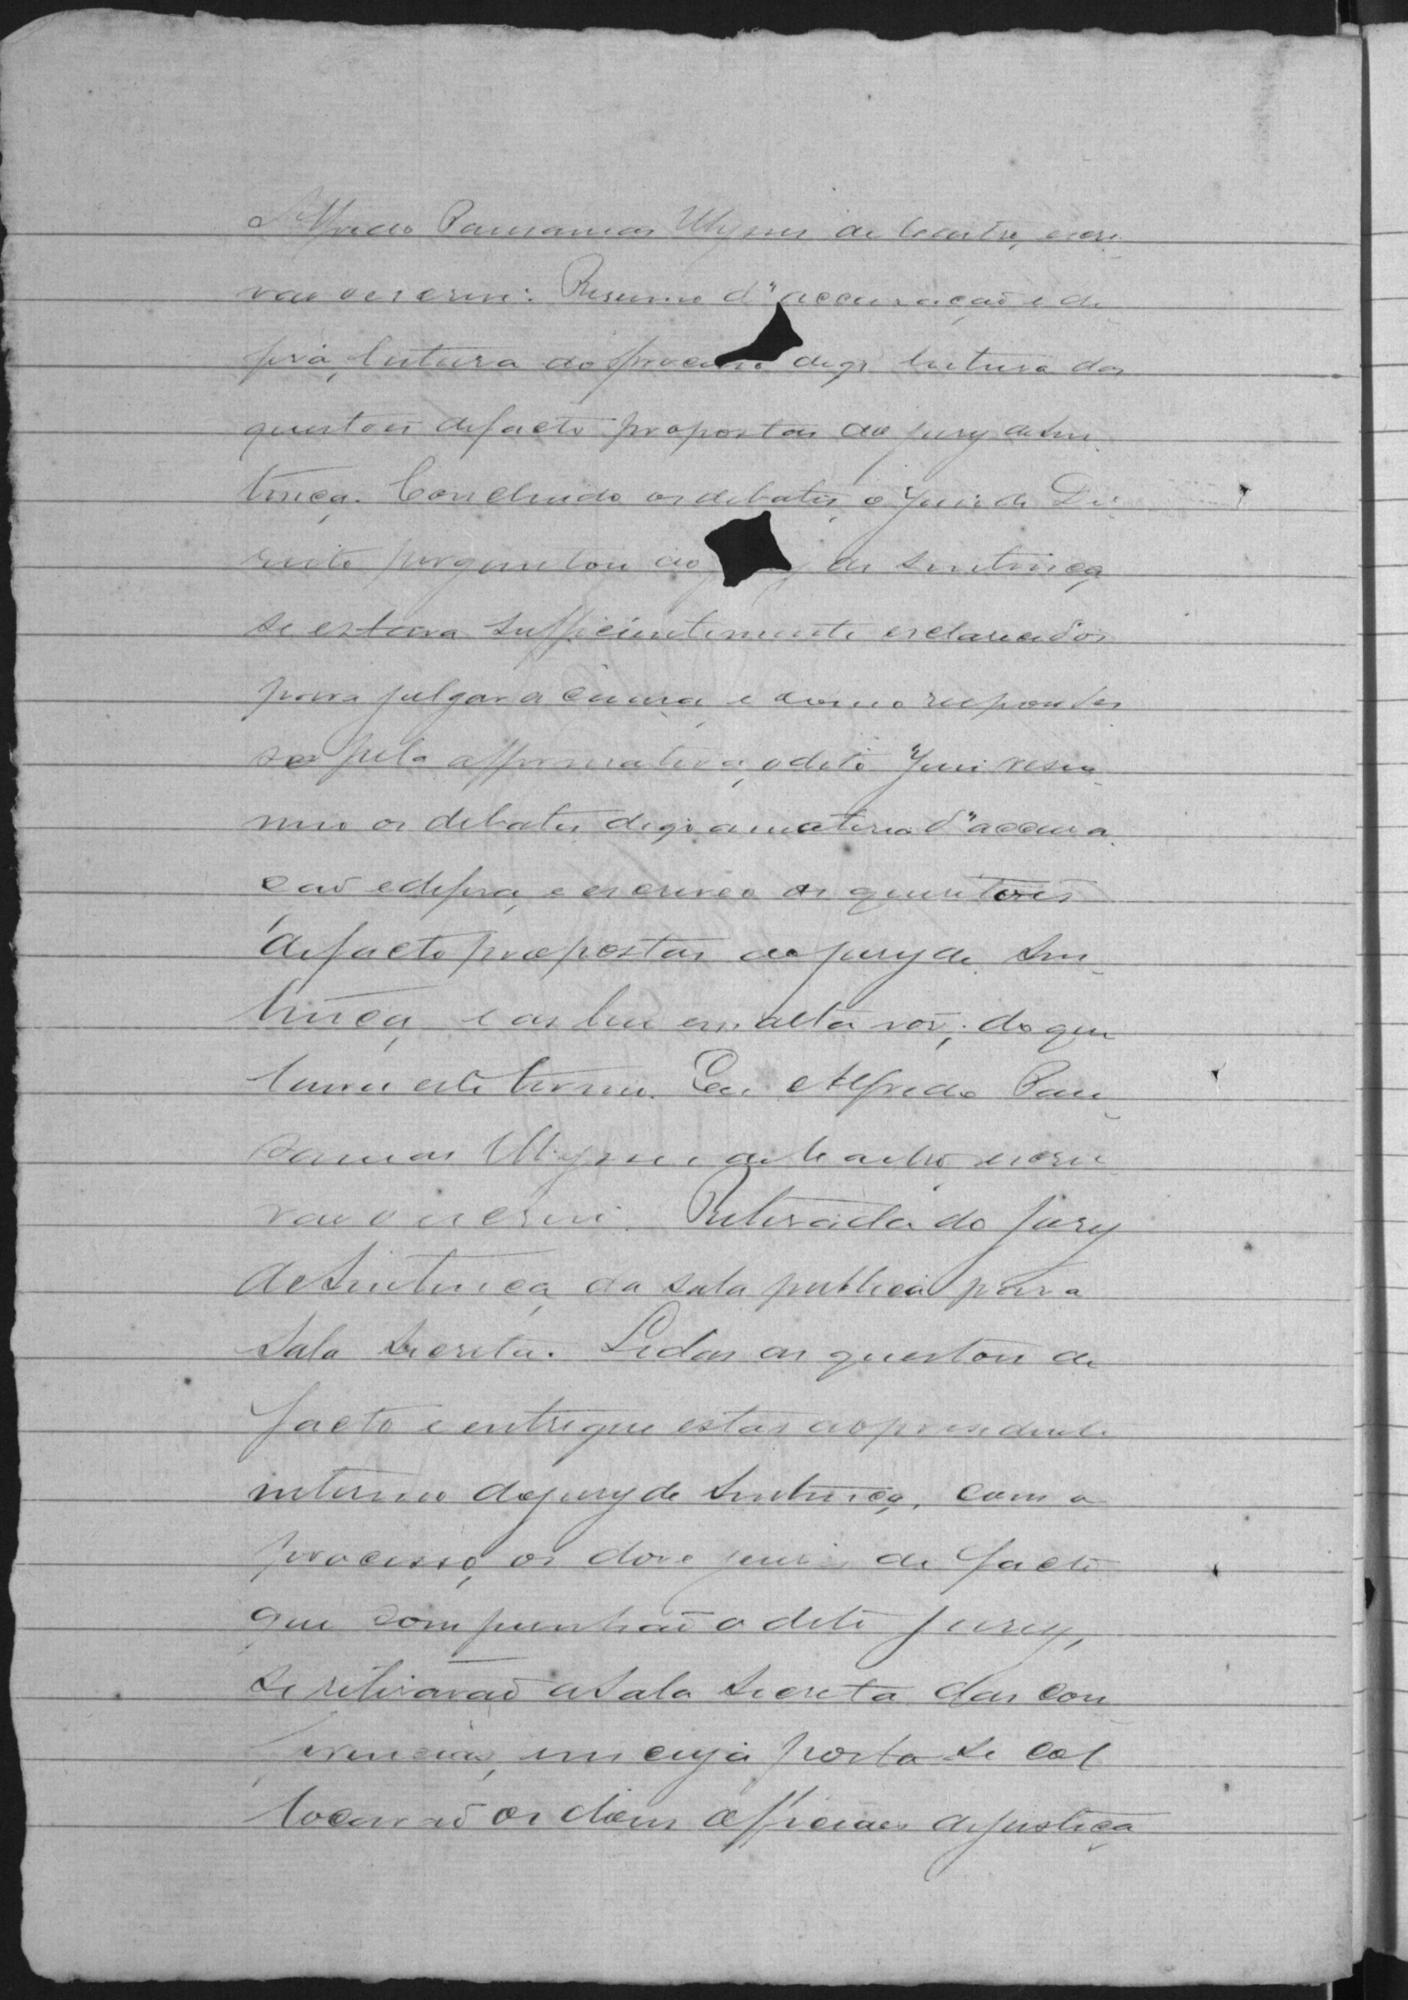 Alfredo Pausanias Ulysses de Castro, escri-
vão o escrevi: Resumo d'accusação e de
feza, leitura do processo digo leitura das
questões de facto propostas ao jury de sen-
tença. Concluido os debates, o Juiz de Di-
reito perguntou ao jury de sentença
se estava sufficientemente esclarecidos
para julgar a causa, e como responder
se pela affirmativa, o dito Juiz resu-
mio os debates digo a materia d'accusa
ção e defeza, e escreveo as questões
de facto propostas ao jury de sen-
tença, e as leu em alta voz; do que
lavrei este termo. Eu Alfredo Pau-
sanias Ulysses de Castro, escri-
vão o escrevi. Retirada do Jury
de Sentença da sala publica para
sala secreta. Lidas as questões de
facto e entregue estas ao presidente
interino do jury de Sentença, com o
processo, os doze juizes de facto
que compunhão o dito jury,
se retirarão a sala secreta das con-
ferencias, em cuja porta se col
locarão os dous officiaes de justiça